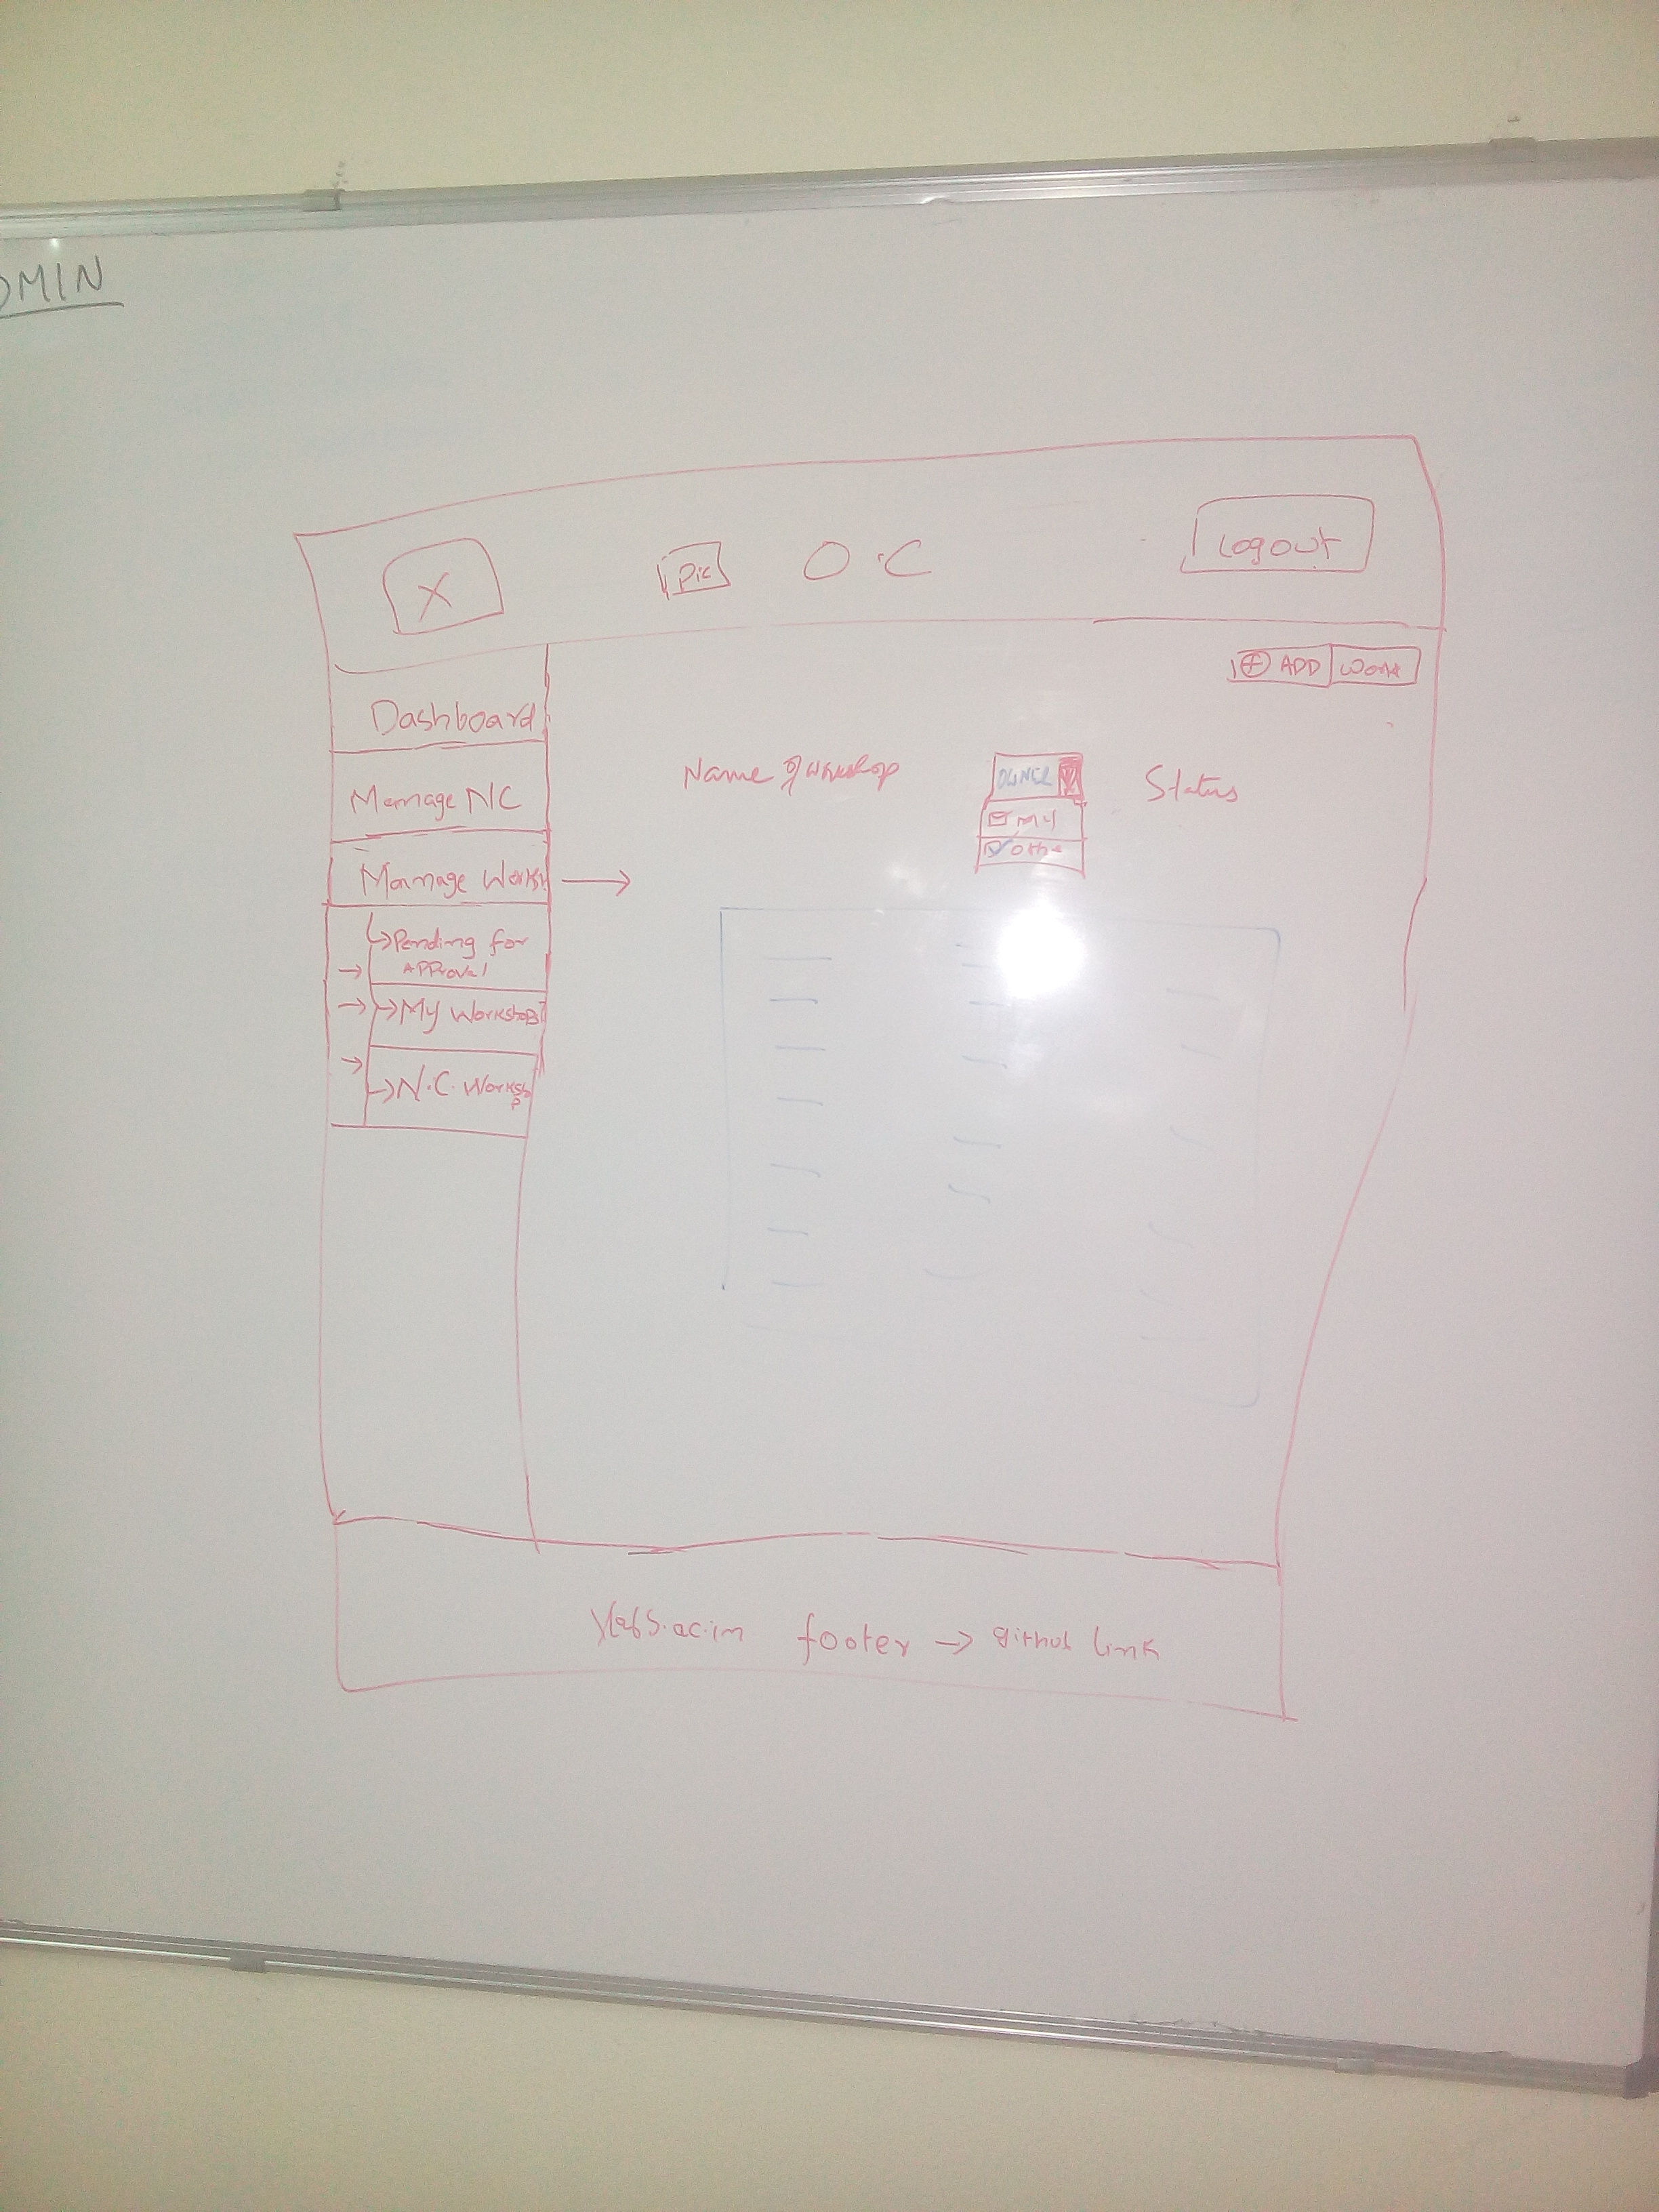 DMIN
X
Pic
O.C
Logout
+ ADD
Dashboard
Manage NC
Manage Worksh
Pending for
APProval
My Workshops
N.C. Worksh
P
Name of workshop
OWNER
Status
My
Othe
Vlabs.ac.in footer → github link